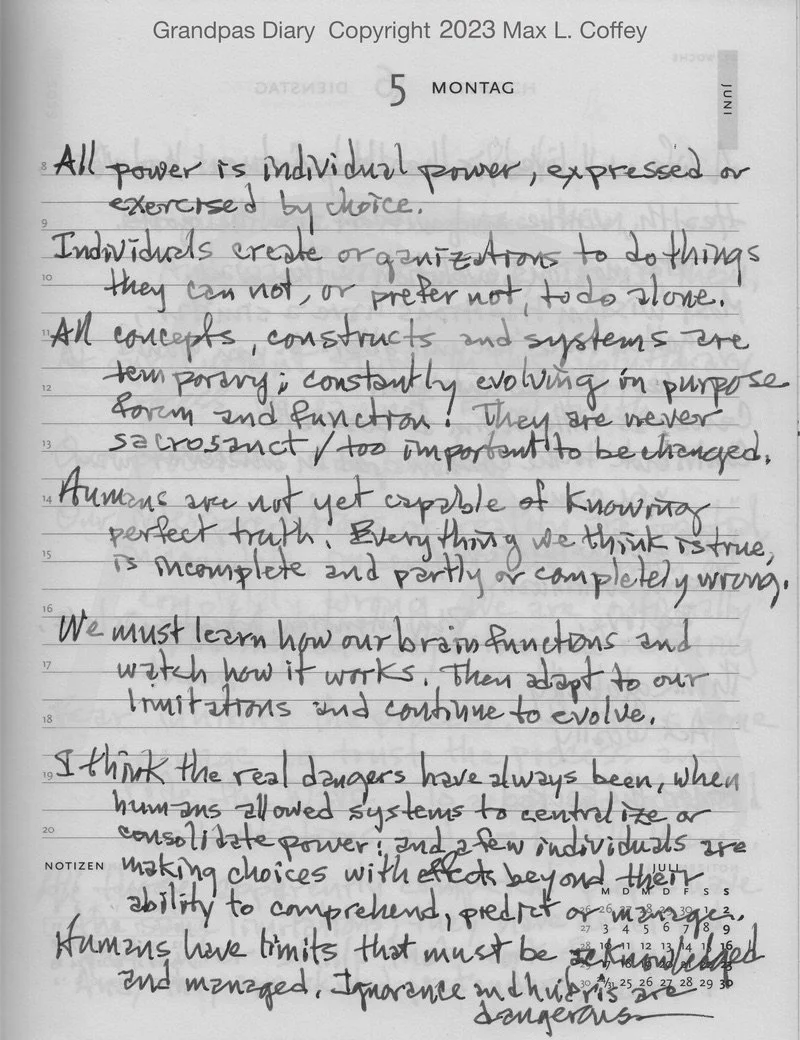 Grandpas Diary Copyright 2023 Max L. Coffey
5 MONTAG
JUNI
8 All power is individual power, expressed or
exercised by choice.
9
Individuals create organizations to do things
10 they can not, or prefer not, to do alone.
11 All concepts, constructs and systems are
12 temporary; constantly evolving in purpose
form and function! They are never
13 sacrosanct / too important to be changed.
14 Humans are not yet capable of knowing
perfect truth. Everything we think is true,
15 is incomplete and partly or completely wrong.
16
We must learn how our brain functions and
17 watch how it works. Then adapt to our
18 limitations and continue to evolve.
19 I think the real dangers have always been, when
humans allowed systems to centralize or
20 consolidate power; and a few individuals are
NOTIZEN making choices with effects beyond their
JULI
M D M D F S S
ability to comprehend, predict or manage.
26 26 27 28 29 30 1 2
27 3 4 5 6 7 8 9
Humans have limits that must be acknowledged
28 10 11 12 13 14 15 16
and managed. Ignorance and hubris are
30 24/31 25 26 27 28 29 30
dangerous